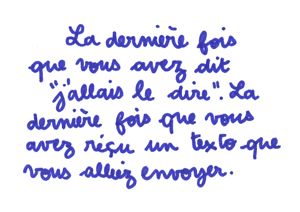 La dernière fois
que vous avez dit
"j'allais le dire". La
dernière fois que vous
avez réçu un texto que
vous alliez envoyer.